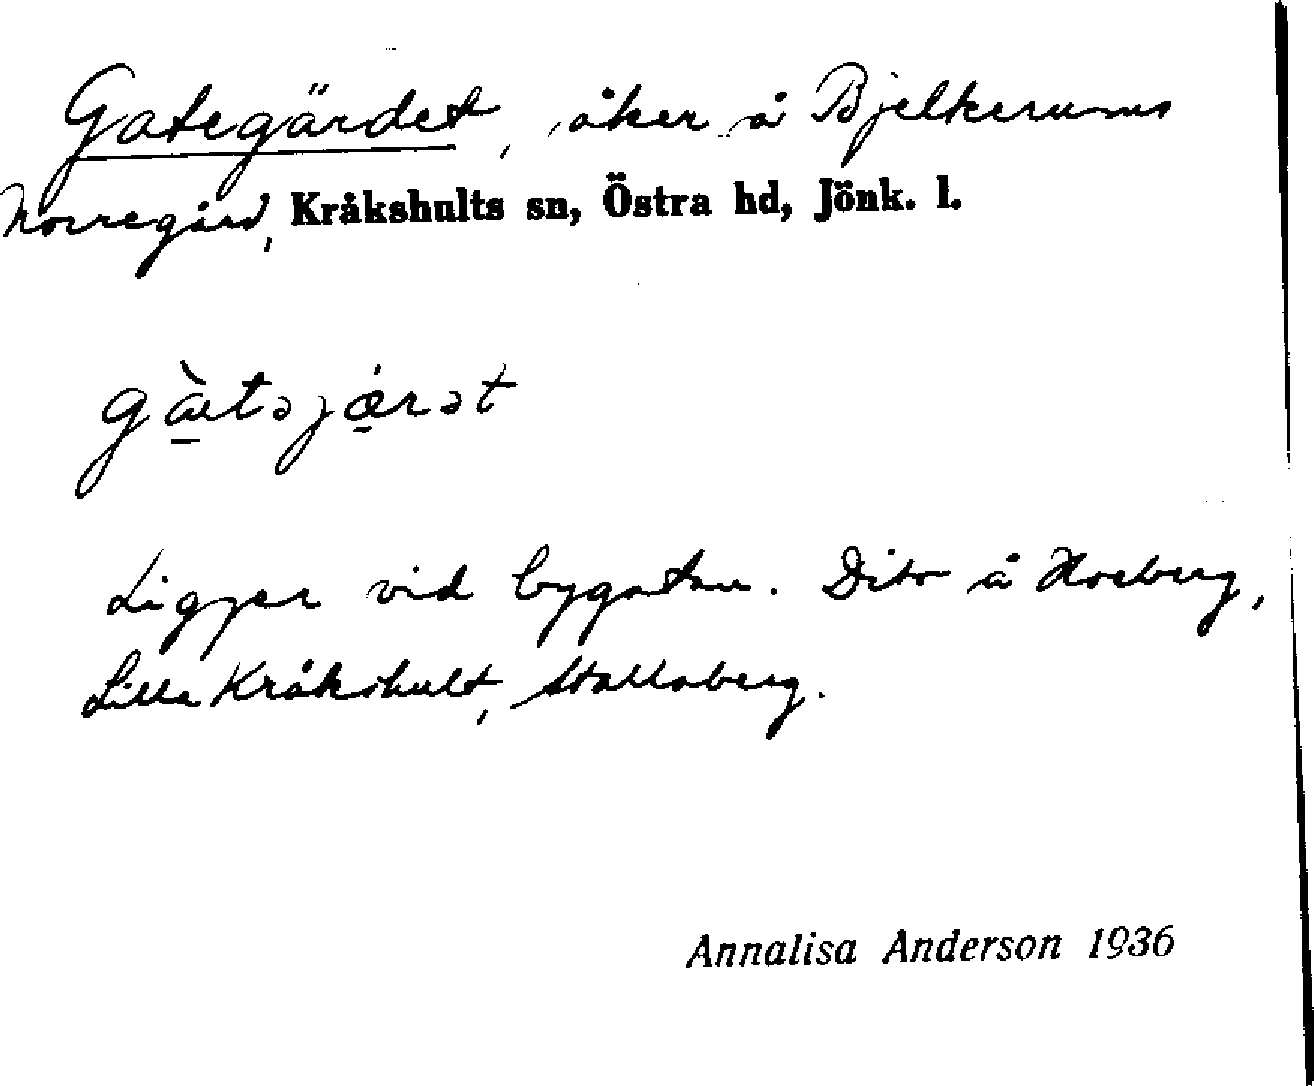 Gategärdet, åker å Bjelkerums
Norregård, Kråkshults sn, Östra hd, Jönk. l.
gàtəjǽrət
Ligger vid bygatan. Dito å Hoeberg,
Lilla Kråkshult, Stallaberg.
Annalisa Anderson 1936